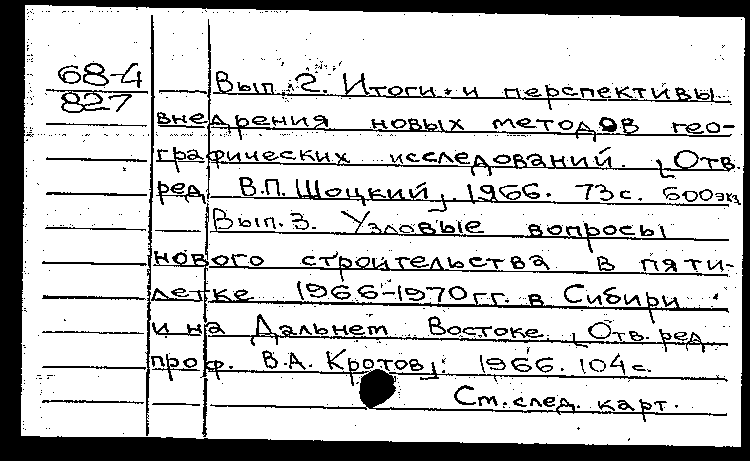 68-4
827
Вып. 2. Итоги и перспективы
внедрения новых методов гео-
графических исследований. [Отв.
ред. В.П. Шоцкий]. 1966. 73 с. 600 экз.
Вып. 3. Узловые вопросы
нового строительства в пяти-
летке 1966-1970 гг. в Сибири
и на Дальнем Востоке. [Отв. ред.
проф. В.А. Кротов]. 1966. 104 с.
См. след. карт.